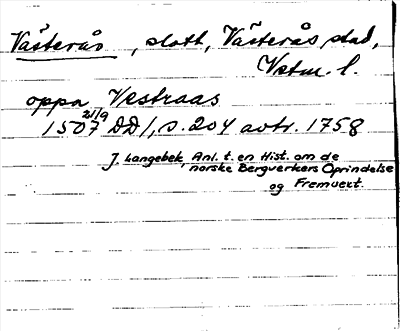 Västerås, slott, Västerås stad,
Vstm. l.
oppa Vestraas
1507 21/9 DD1, s. 204 avtr. 1758
J. Langebek, Anl. t. en Hist. om de
norske Bergverkers Oprindelse
og Fremvext.